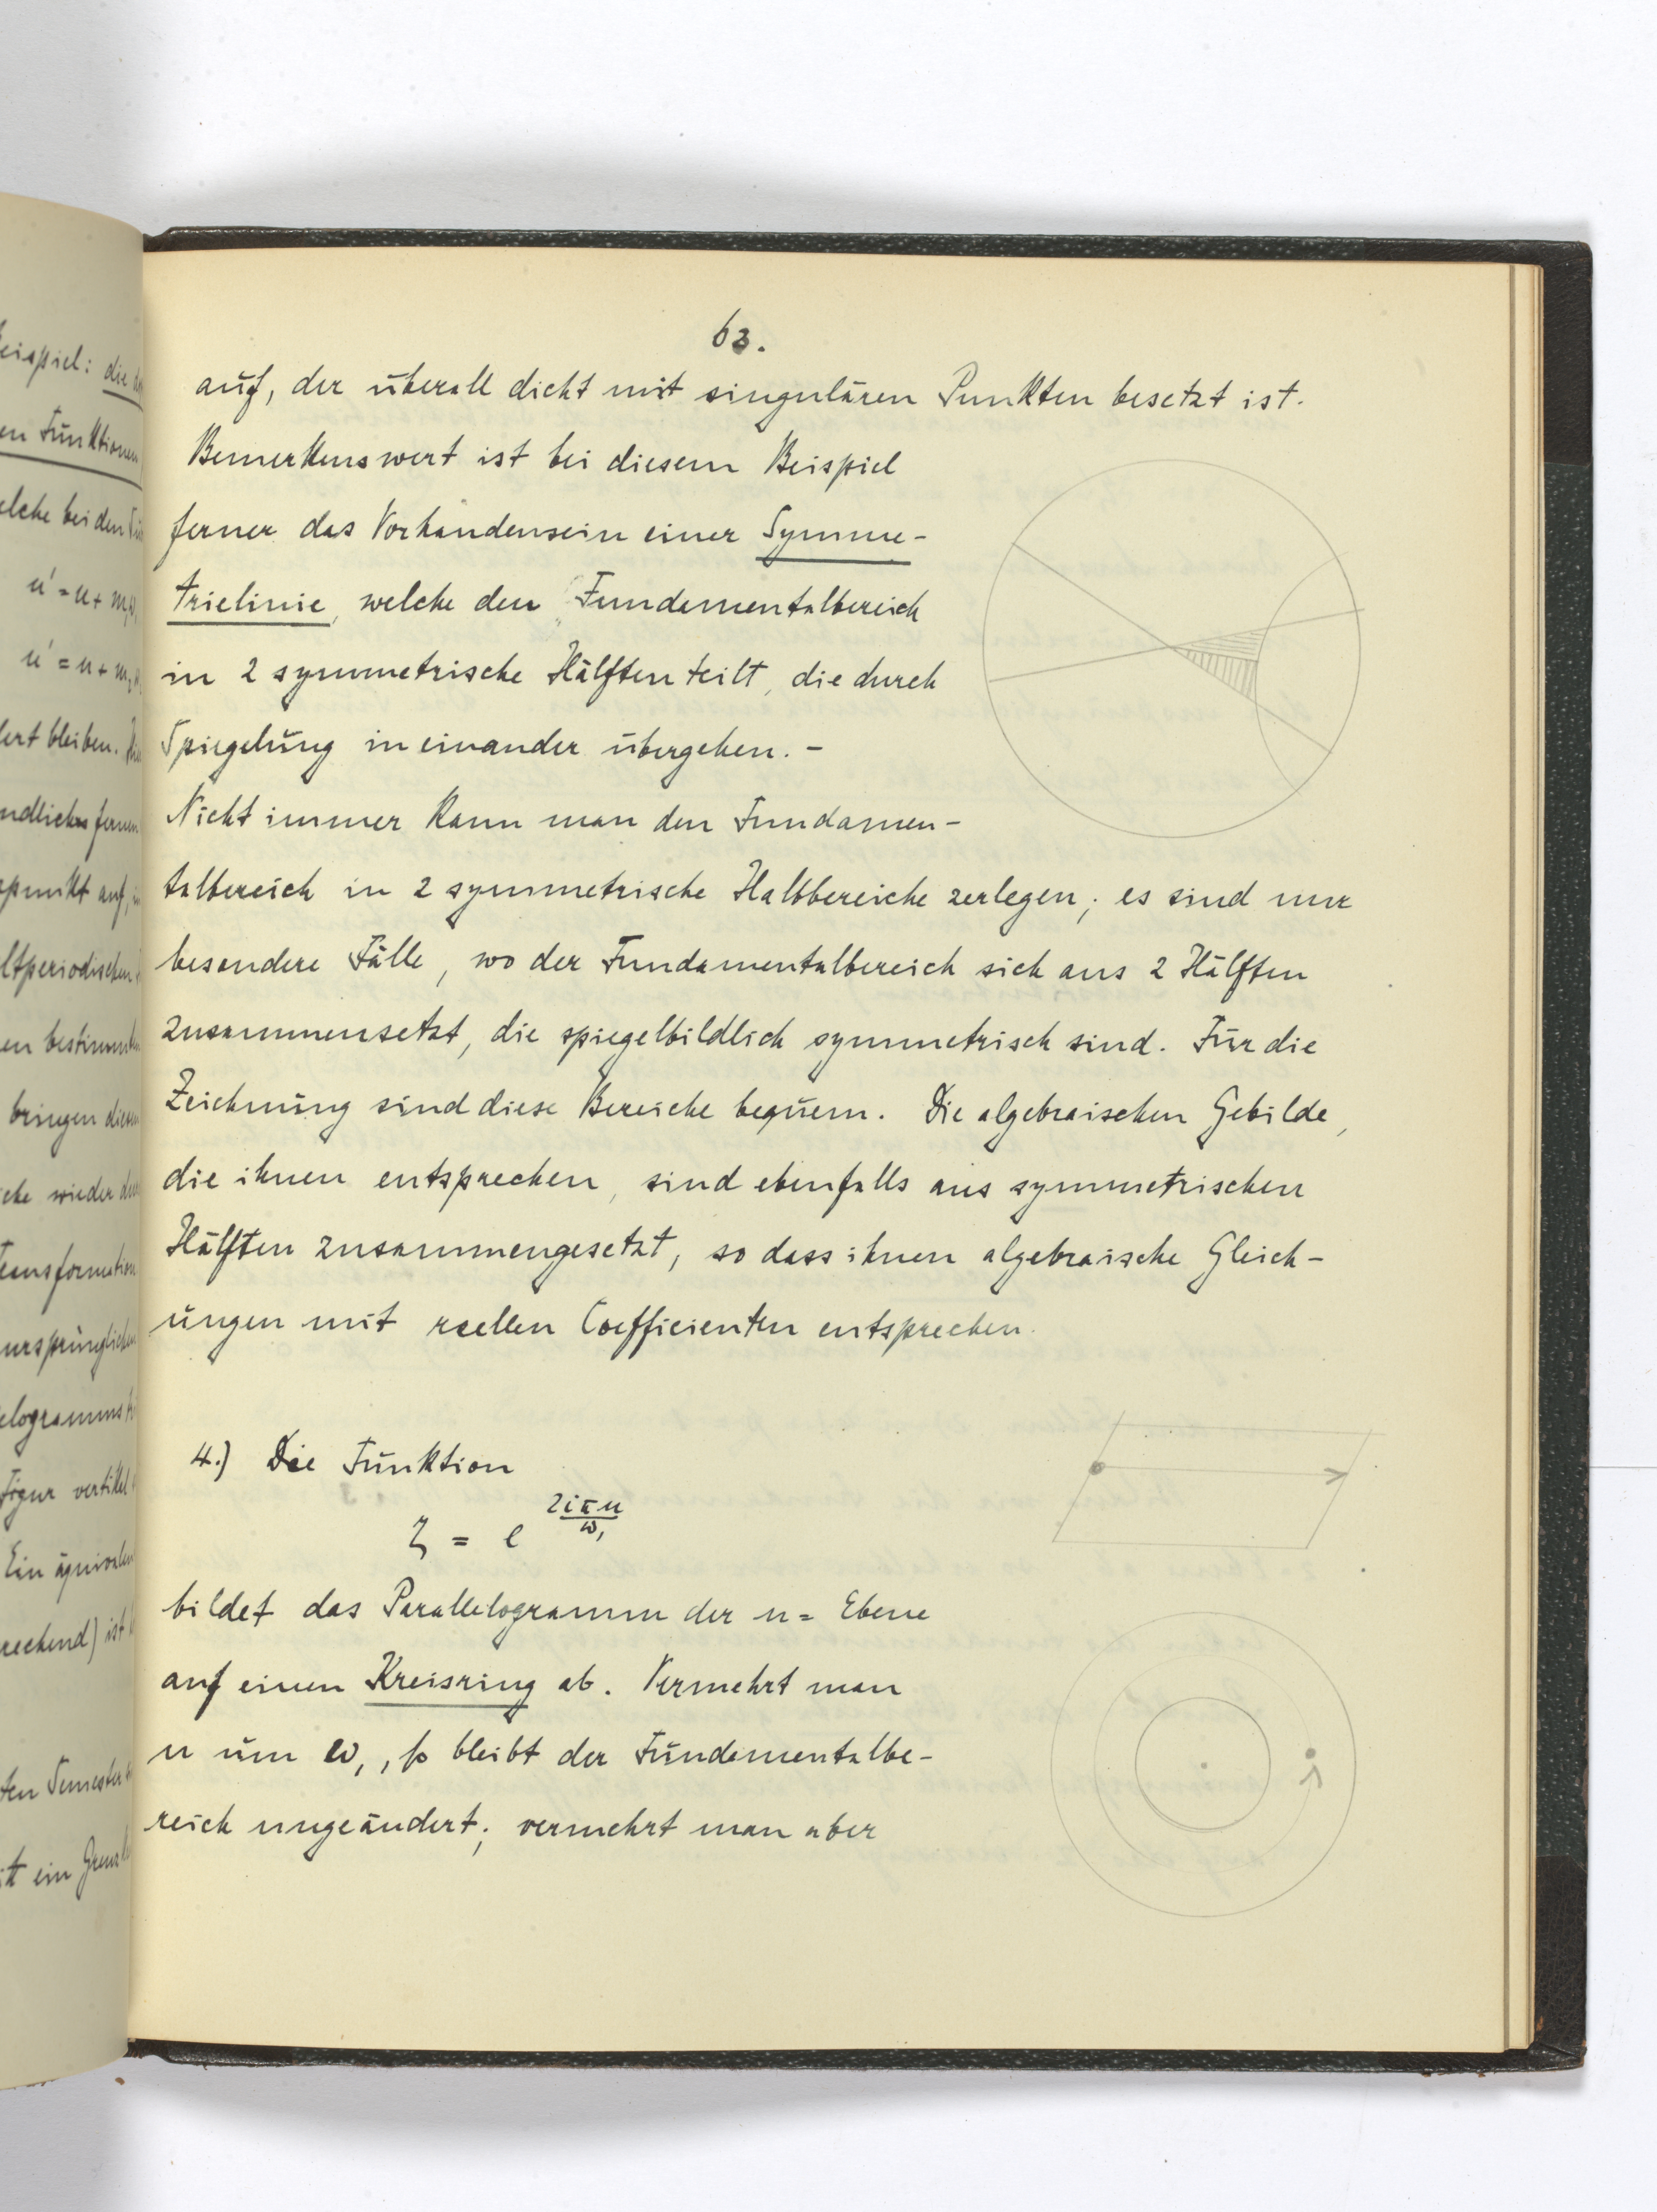 63.
auf, der überall dicht mit singulären Punkten besetzt ist.
Bemerkenswert ist bei diesem Beispiel
ferner das Vorhandensein einer Symme-
trielinie, welche den Fundamentalbereich
in 2 symmetrische Hälften teilt, die durch
Spiegelung in einander übergehen. –
Nicht immer kann man den Fundamen-
talbereich in 2 symmetrische Halbbereiche zerlegen; es sind nur
besondere Fälle, wo der Fundamentalbereich sich aus 2 Hälften
zusammensetzt, die spiegelbildlich symmetrisch sind. Für die
Zeichnung sind diese Bereiche bequem. Die algebraischen Gebilde,
die ihnen entsprechen, sind ebenfalls aus symmetrischen
Hälften zusammengesetzt, so dass ihnen algebraische Gleich-
ungen mit reellen Coefficienten entsprechen.
4.) Die Funktion
ζ = e^{2iπu/ω₁}
bildet das Parallelogramm der u= Ebene
auf einen Kreisring ab. Vermehrt man
u um ω₁, so bleibt der Fundamentalbe-
reich ungeändert; vermehrt man aber
eispiel: die
en Funktionen
elche bei den
u' = u + m
u' = u + m
ert bleiben.
ndlich fernen
punkt auf,
ltperiodischen
en bestimm
bringen diese
che wieder
ransformation
ursprünglichen
elogramms
Figur vertikal
Ein äquivalen
rechend) ist
ten Semester
tt ein Grenz